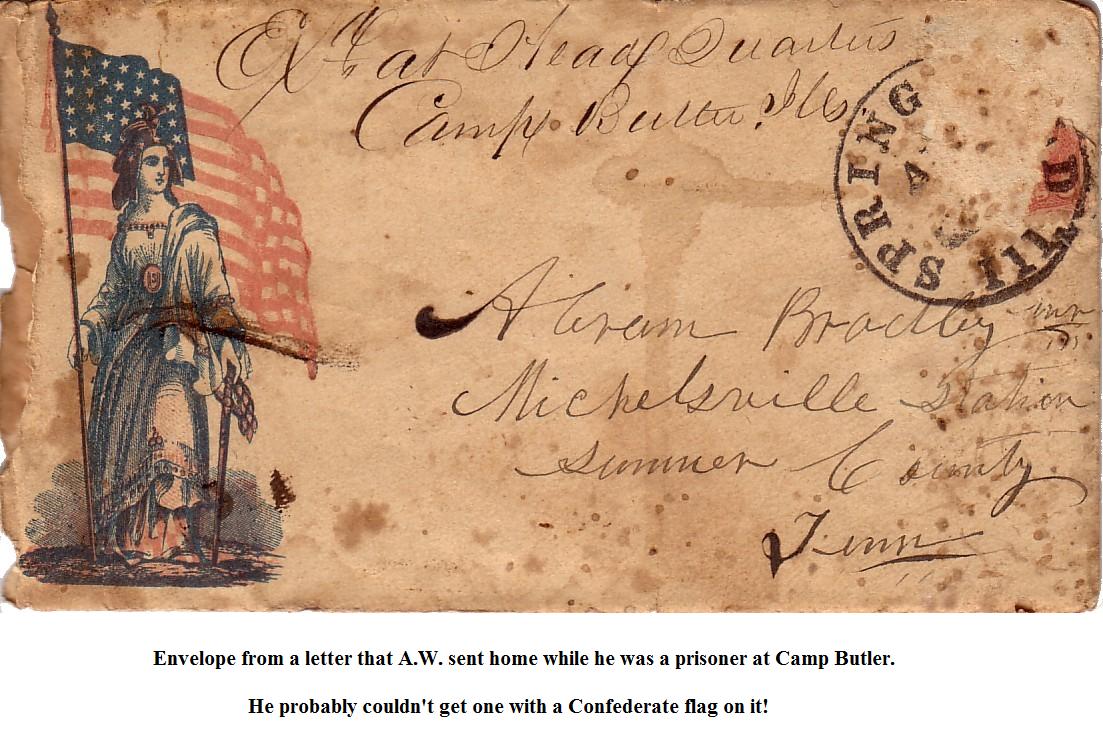 Exd at Head Quarters
Camp Butler Ills
SPRING D Ill.
A
Abram Bradley
Michelsville Station
Sumner County
Tenn
Envelope from a letter that A.W. sent home while he was a prisoner at Camp Butler.
He probably couldn't get one with a Confederate flag on it!